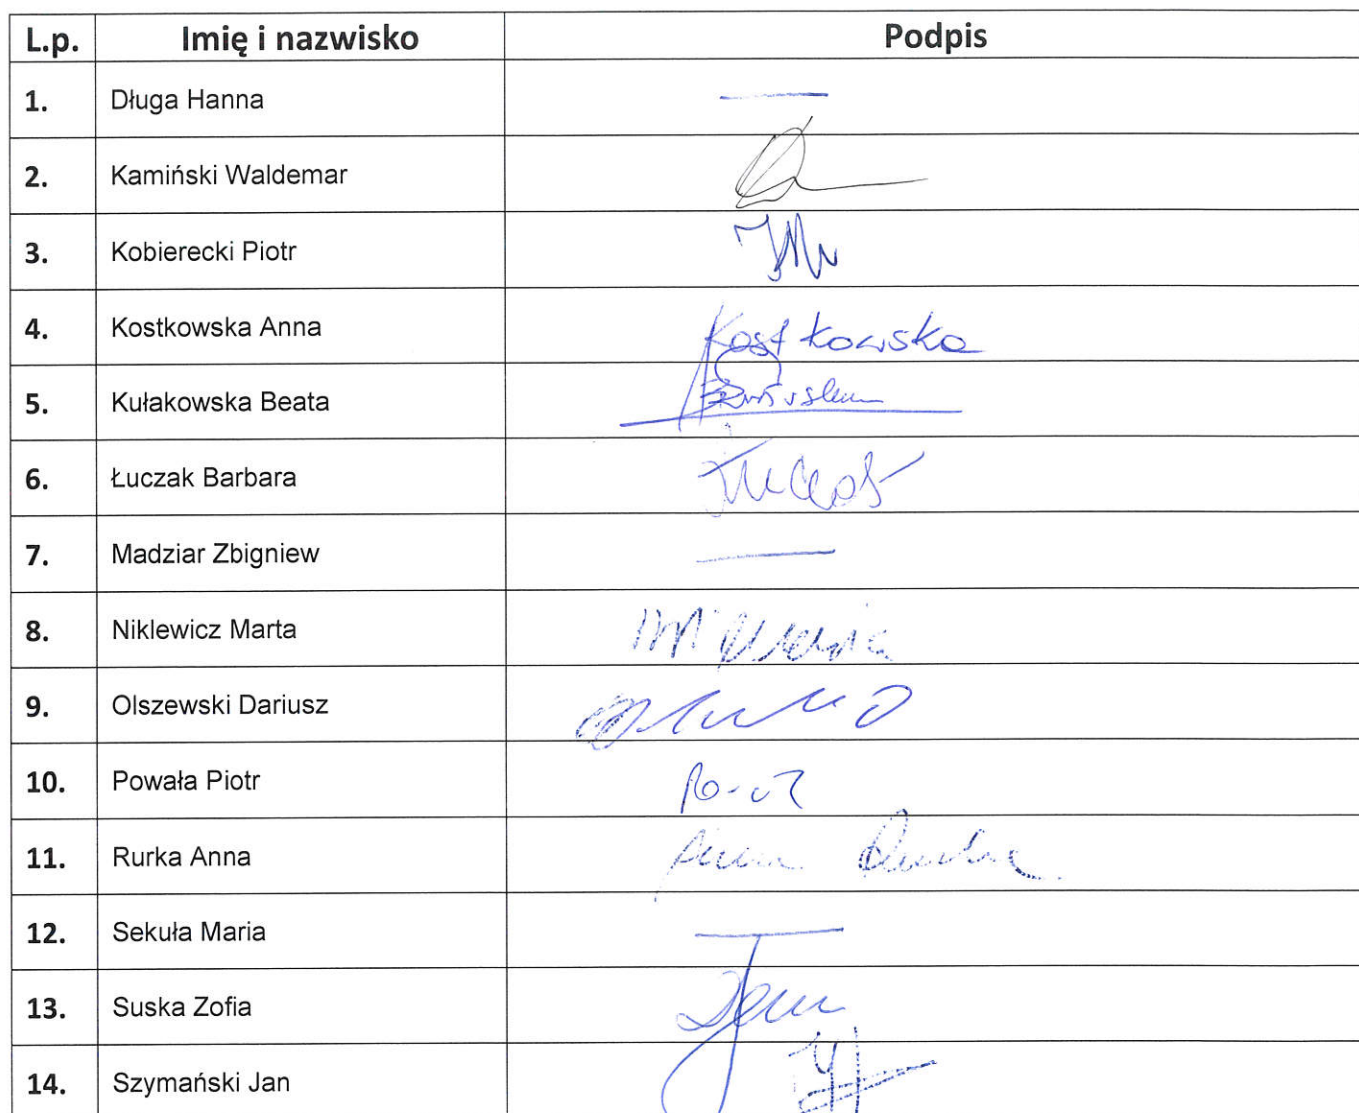 L.p. Imię i nazwisko Podpis
1. Długa Hanna —
2. Kamiński Waldemar
3. Kobierecki Piotr
4. Kostkowska Anna Kostkowska
5. Kułakowska Beata
6. Łuczak Barbara Łuczak
7. Madziar Zbigniew —
8. Niklewicz Marta
9. Olszewski Dariusz
10. Powała Piotr
11. Rurka Anna Anna Rurka
12. Sekuła Maria —
13. Suska Zofia
14. Szymański Jan